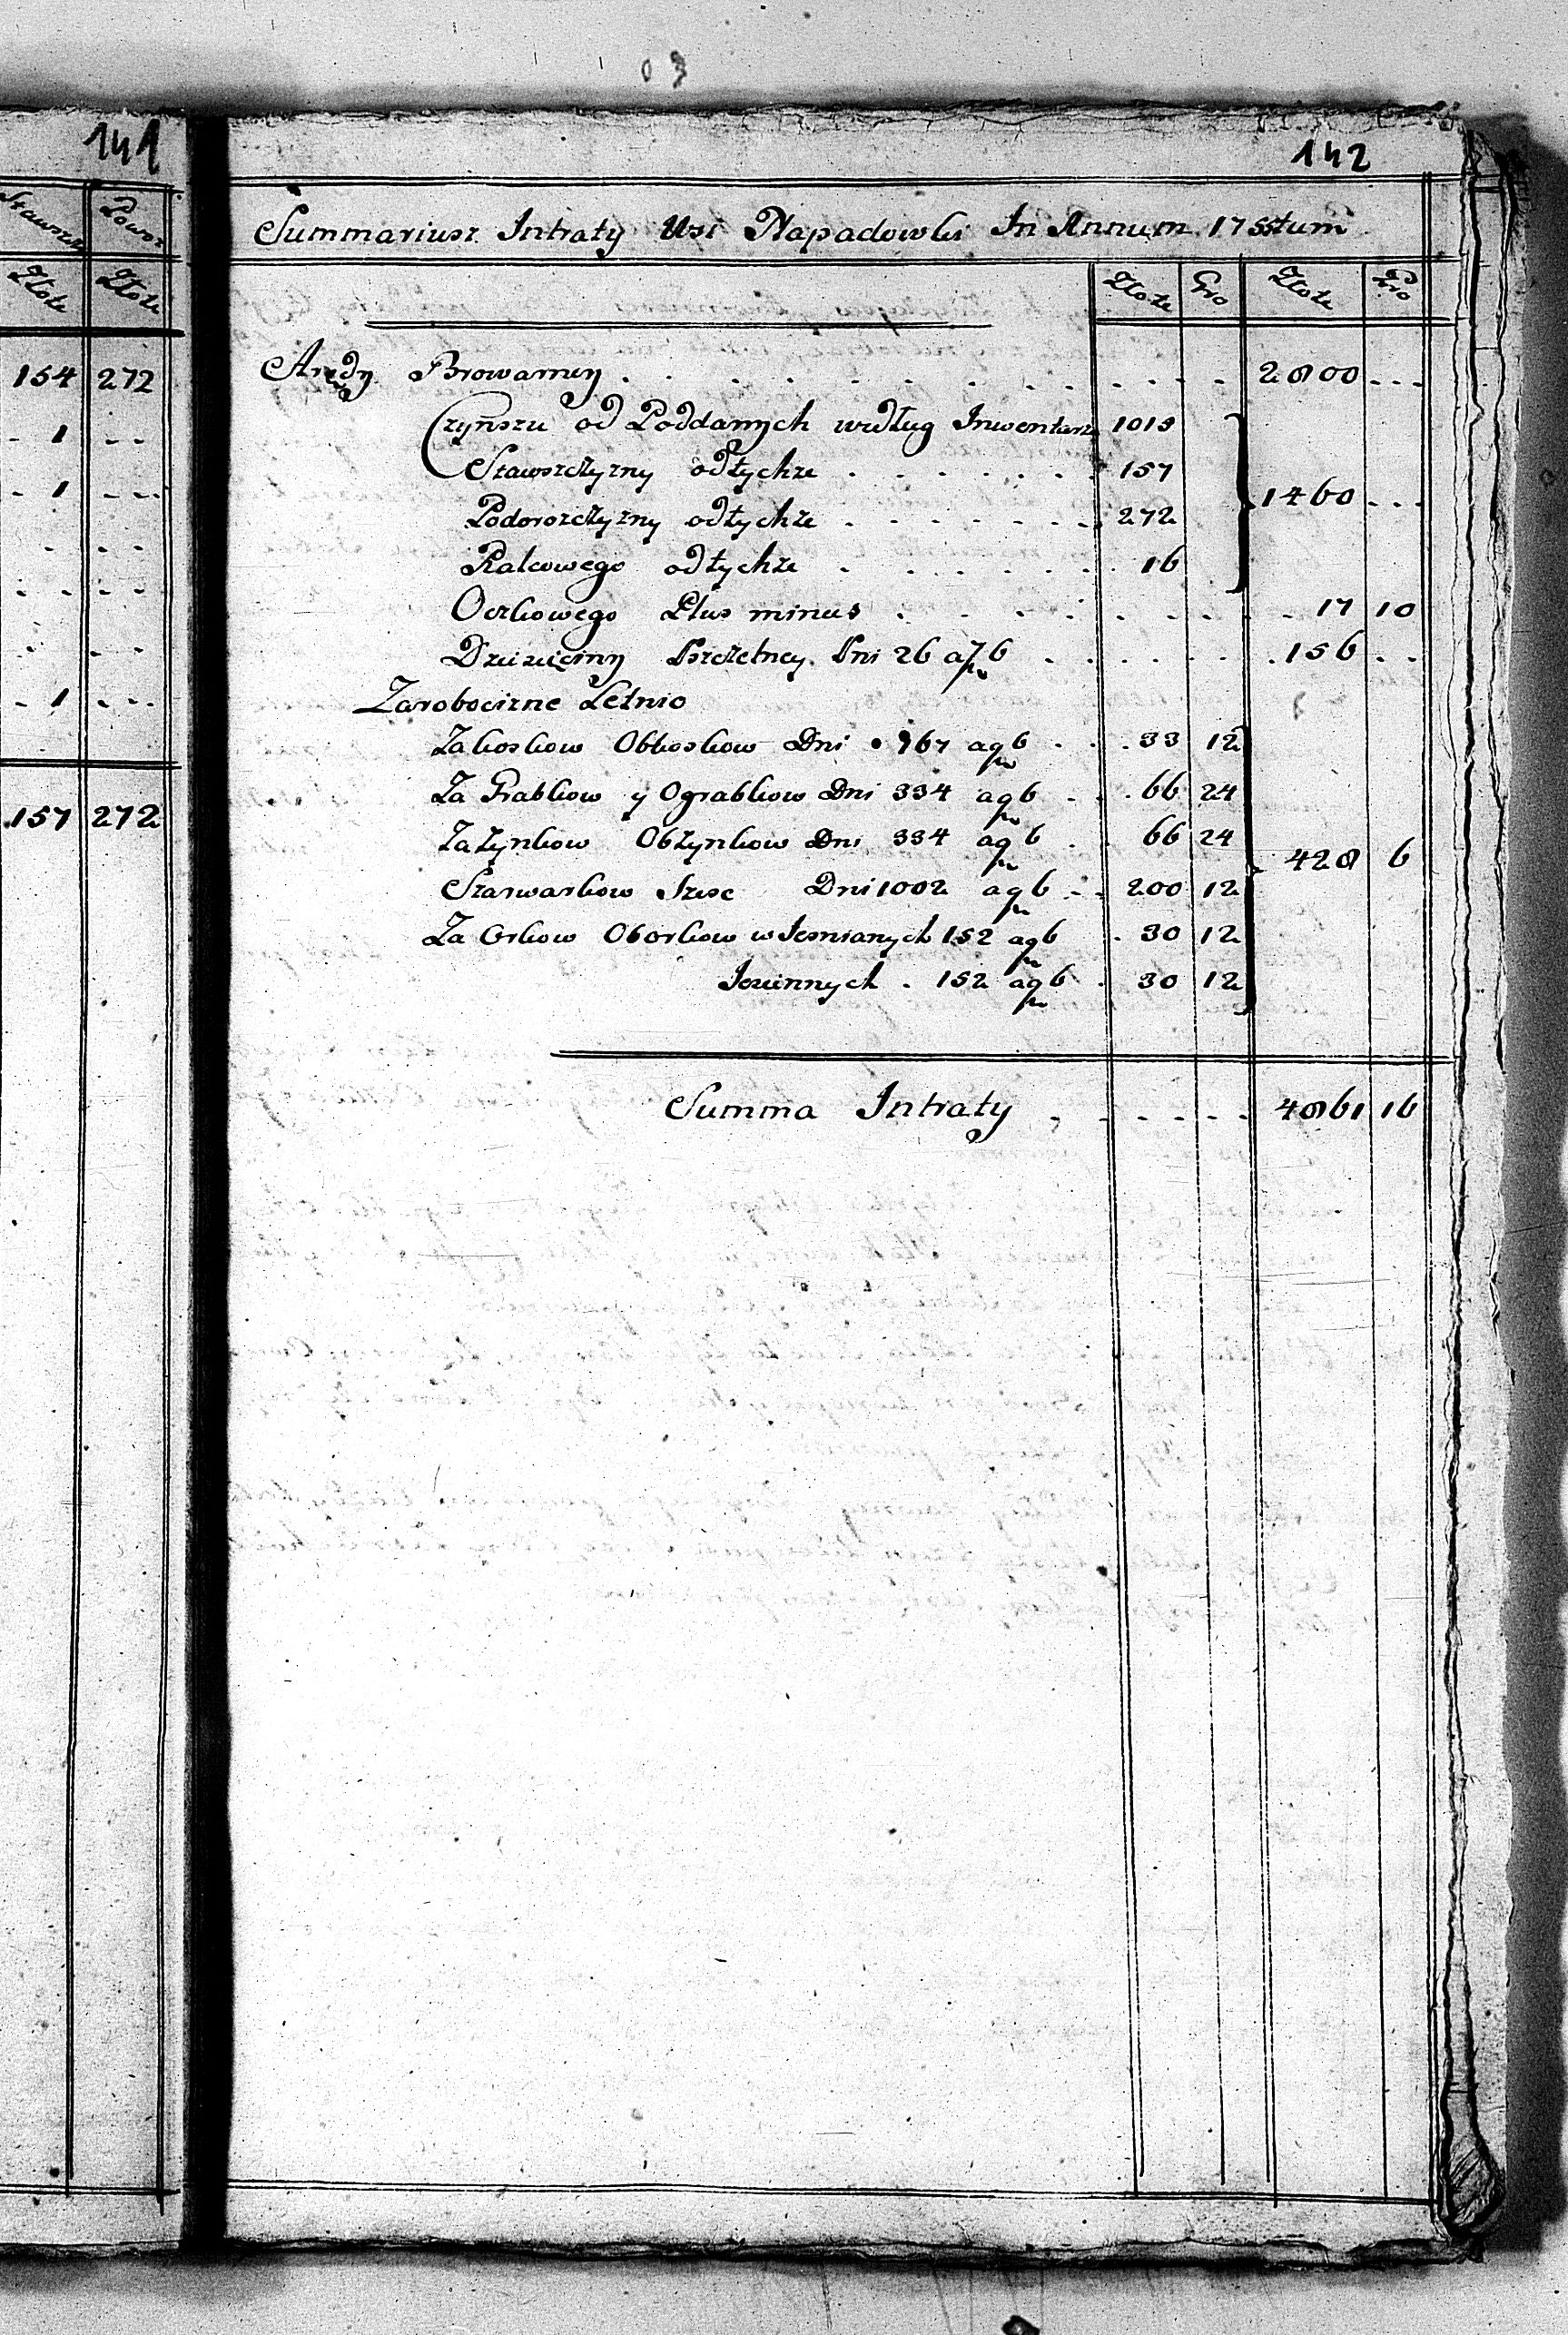 03
141
Stawszcz Powoz
Złote Złote
154 272
1
1
1
157 272
142
Summariusz Intraty Wsi Napadowki In Annum 1755tum
Złote Gro Złote Gro
Arędy Browarney 2800
Czynszu od Poddanych według Inwentarza 1015
Stawszczyzny odtychże 157
Podoroszczyzny odtychże 272 1460
Ralcowego odtychże 16
Oczkowego Plus minus 17 10
Dziesięciny Pszczelney Pni 26 a 6 156
Zarobocizne Letnio
Zakoskow Obkoskow Dni 167 a g 6 33 12
Za Grabkow y Ograbkow Dni 334 a g 6 66 24
Zażynkow Obżynkow Dni 334 a g 6 66 24
428 6
Szarwarkow Szesc Dni 1002 a g 6 200 12
Za Orkow Oborkow wIesnianych 152 a g 6 30 12
Iesiennych 152 a g 6 30 12
Summa Intraty 4861 16